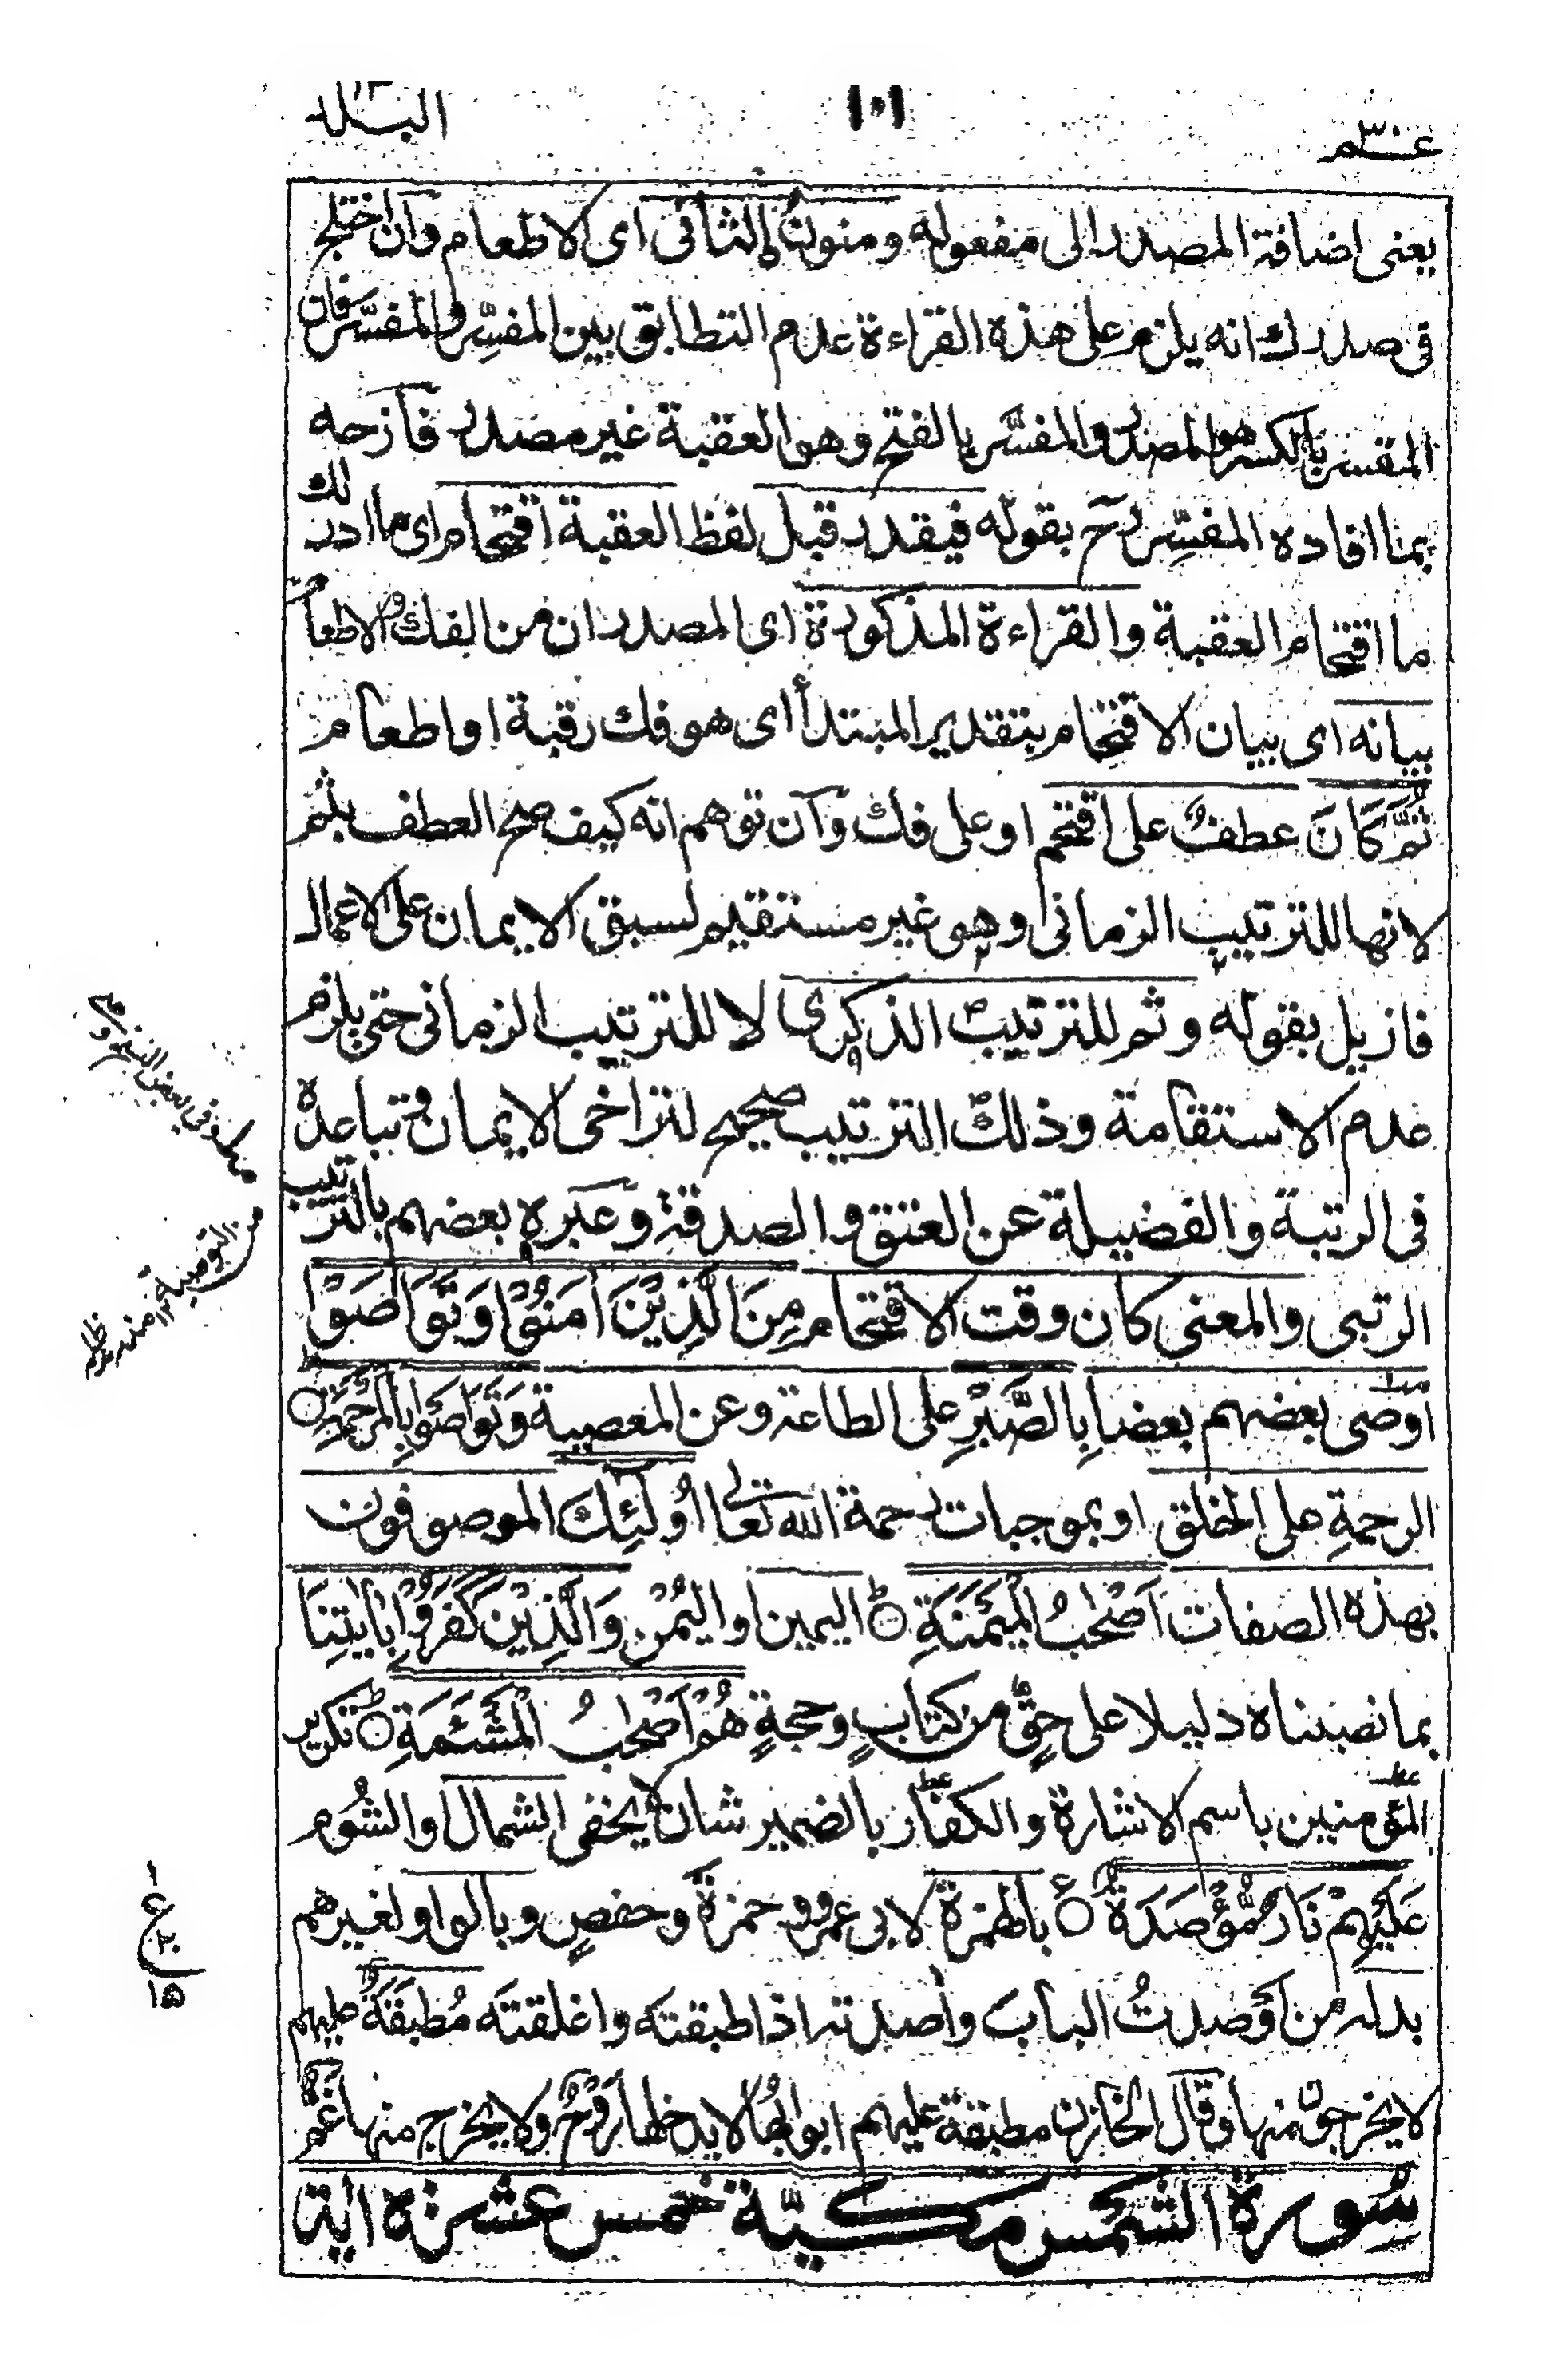 عـــم٣٠
١٠١
البلد
يعنى اضافة المصدر الى مفعوله ومنونٌ الثانى اى الاطعام وان اختلج
فى صدرك انه يلزم على هذه القراءة عدم التطابق بين المفسِّر والمفسَّر فان
المفسر بالكسر هو المصدر والمفسَّر بالفتح وهو العقبة غير مصدر فازحه
بما افاده المفسِّر رح بقوله فيقدر قبل لفظ العقبة اقتحام اى ما ادرٰك
ما اقتحام العقبة والقراءة المذكورة اى المصدران من الفك والاطعام
بيانه اى بيان الاقتحام بتقدير المبتدأ اى هو فك رقبة او اطعام
ثُمَّ كَانَ عطفٌ على اقتحم او على فك وان توهم انه كيف صح العطف بثم
لانها للترتيب الزمانى وهو غير مستقيم لسبق الايمان على الاعمال
فازيل بقوله وثم للترتيب الذكرى لا للترتيب الزمانى حتى يلزم
عدم الاستقامة وذلك الترتيب صحيح لتراخى الايمان وتباعده
فى الرتبة والفضيلة عن العتق والصدقة وعبره بعضهم بالترتيب
الرتبى والمعنى كان وقت الاقتحام مِنَ الَّذِيْنَ اٰمَنُوْا وَتَوَاصَوْا
اوصى بعضهم بعضا بِالصَّبْرِ على الطاعة وعن المعصية وَتَوَاصَوْا بِالْمَرْحَمَةِ
الرحمةِ على الخلق او بموجبات رحمة الله تعالى اُولٰٓئِكَ الموصوفون
بهذه الصفات اَصْحٰبُ الْمَيْمَنَةِ اليمين او اليُمْن وَالَّذِيْنَ كَفَرُوْا بِاٰيٰتِنَا
بما نصبناه دليلا على حقٍّ من كتابٍ وحجةٍ هُمْ اَصْحٰبُ الْمَشْـَٔمَةِ تكرير
المؤمنين باسم الاشارة والكفار بالضمير شان لا يخفى الشمال او الشُوم
عَلَيْهِمْ نَارٌ مُّؤْصَدَةٌ بالهمزة لابى عمرو وحمزة وحفصٍ وبالواو لغيرهم
بدله من اَوْصدتُ البابَ واٰصدته اذا طبقته واغلقته مُطبَقَةٌ عليهم
لا يخرجون منها وقال الخازن مطبقة عليهم ابوابها لا يدخلها رَوْحٌ ولا يخرج منها غَمٌّ
سُورة الشَّمْس مكيّة خمس عشرة اٰية
١
ع
٢٠
١٥